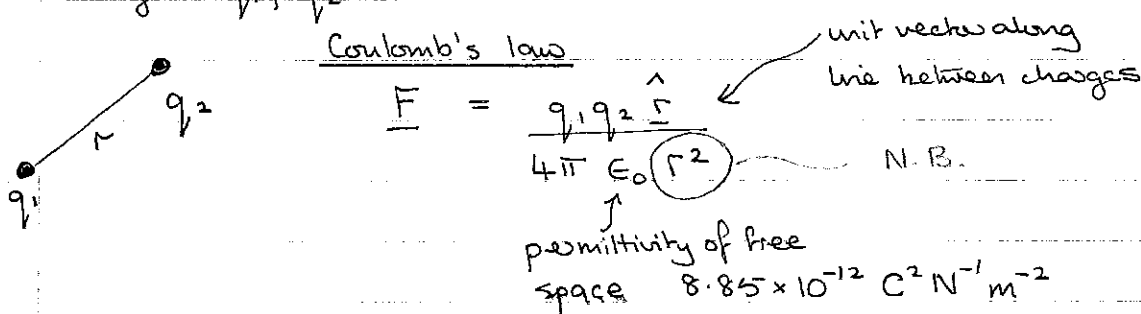 q₁, q₂
Coulomb's law
unit vector along
line between charges
q₂
r
q₁
F = q₁q₂ r̂ / 4π ε₀ r²
N.B.
permittivity of free
space 8.85 × 10⁻¹² C² N⁻¹ m⁻²